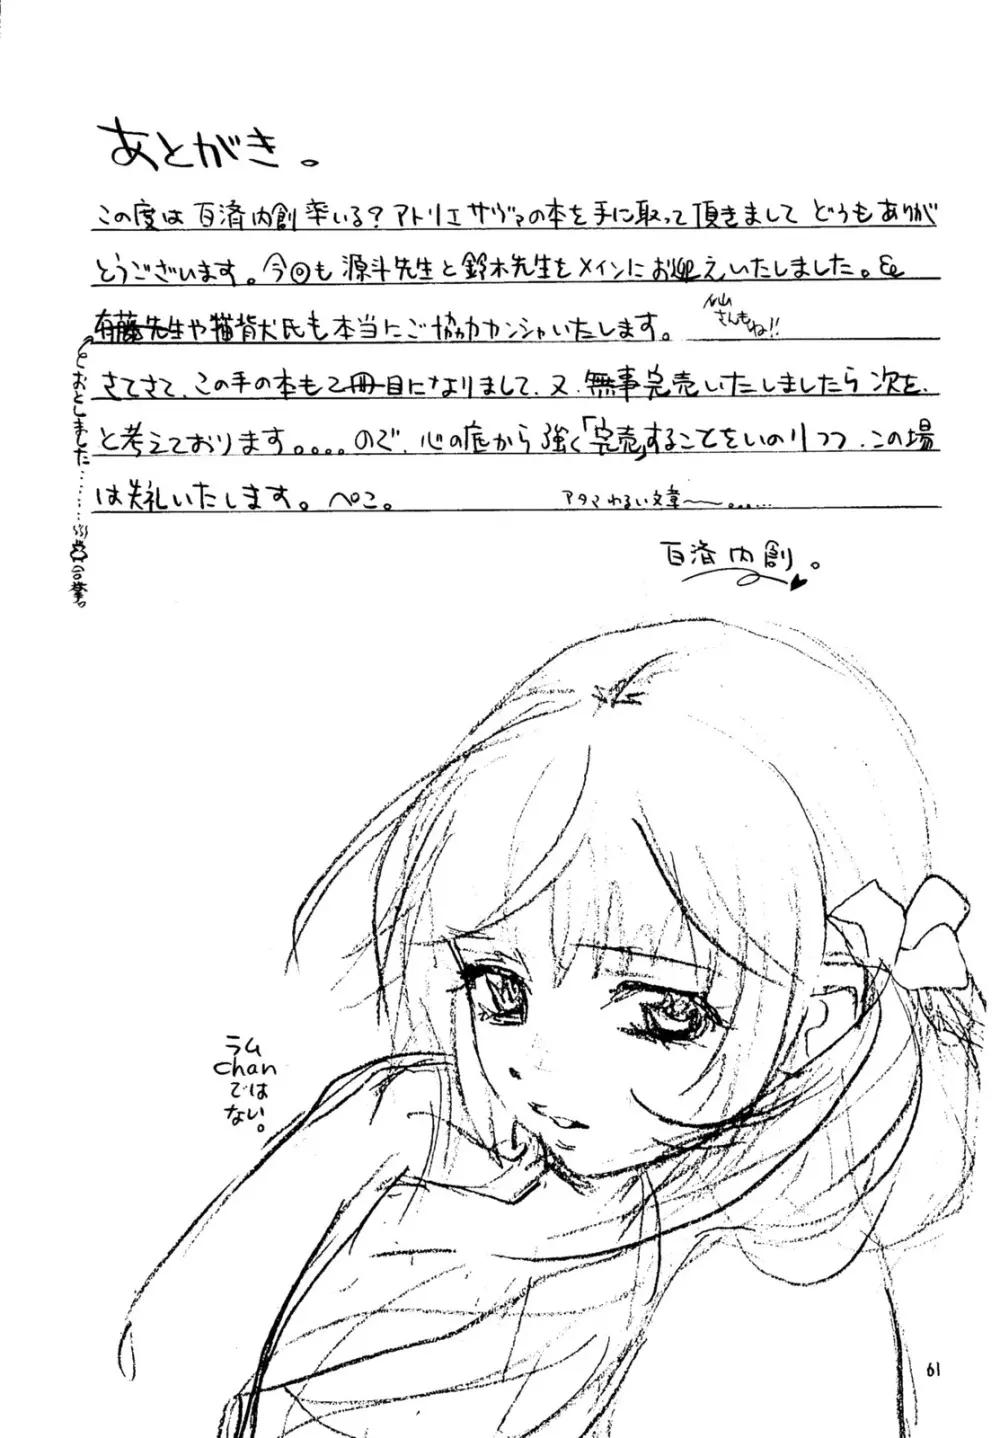 あとがき。
この度は百済内創率いる?アトリエサヴァの本を手に取って頂きましてどうもありが
とうございます。今回も源斗先生と鈴木先生をメインにお迎えいたしました。&
有藤先生や猫背犬氏も本当にご協力カンシャいたします。
仙山さんもね!!
さてさて、この手の本も2冊目になりまして、又、無事完売いたしましたら次を、
と考えております。。。。のデ、心の底から強く「完売」することをいのりつつ、この場
は失礼いたします。ぺこ。
アタマわるい文章〜〜。……
おとしました……
合掌。
百済内創。
ラム
chan
では
ない。
61